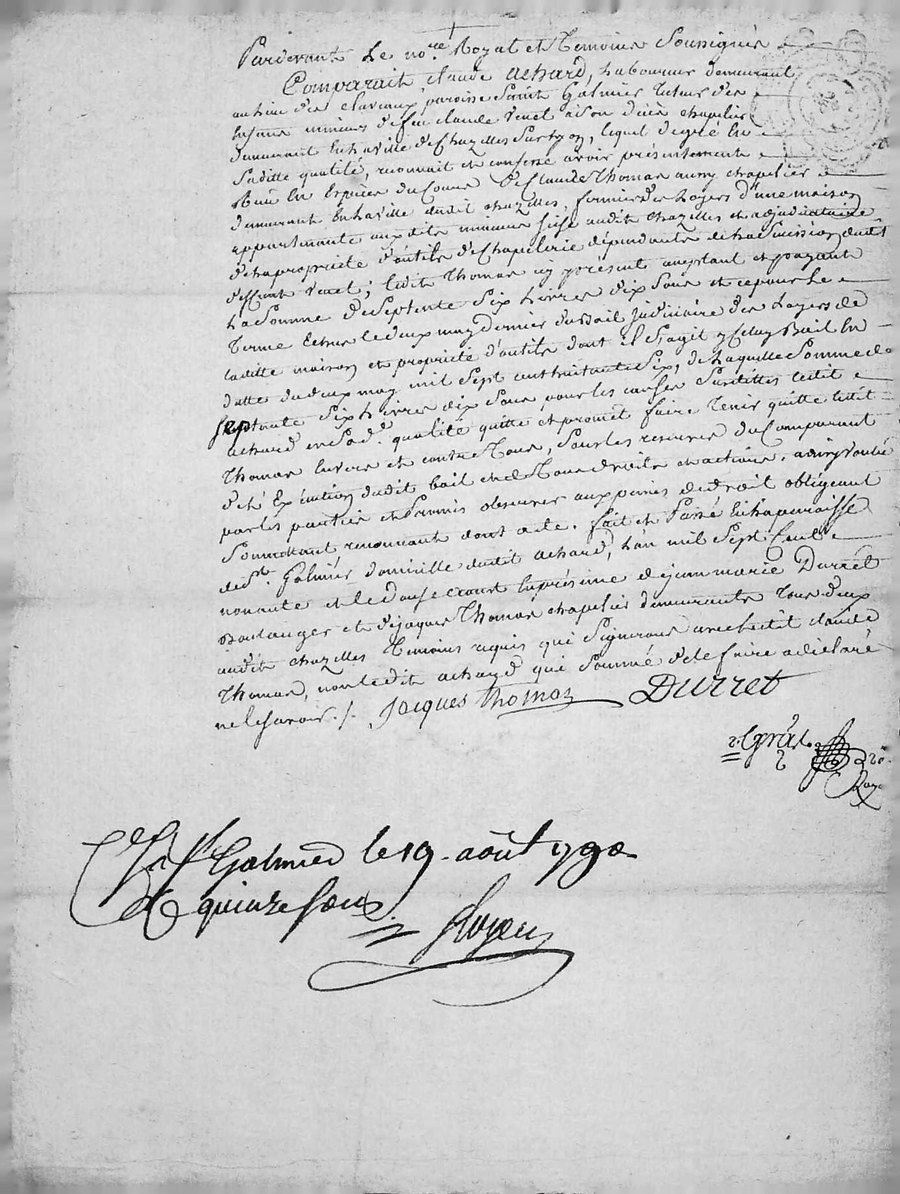 Pardevant Le no.re Royal et Temoins Soussignés
Comparait Claude Achard, Laboureur demeurant
au lieu des claveaux, paroisse Saint Galmier Tuteur des
Enfans mineurs de feu claude Venet a son décès chapelier
demeurant En la ville de Chazelles sur Lyon, lequel de gré En
Saditte qualité, reconnait et confesse avoir présentement
Reçu En Espèces du Cours De Claude Thomas aussy chapelier
demeurant En la ville dudit chazelles, fermier des Loyers d'une maison
appartenante auxdits mineurs sise audit chazelles et adjudicataire
de la propriété d'outils de chapelerie dépendants de la succession dudit
deffunt Venet; ledit Thomas icy présent acceptant et payant
La Somme de Septente Six Livres dix Sous et ce pour Le
Terme Echus le deux may dernier du Bail judiciaire des Loyers de
laditte maison et propriété d'outils dont il S'agit yceluy Bail En
datte du deux may mil Sept cent huitante Six, de Laquelle Somme de
septente Six Livres dix Sous pour les causes Susdittes ledit
achard en sad. qualité quitte et promet faire Tenir quitte ledit
Thomas Envers et contre Tous, Sous les reserves du Comparant
de l'Exécution dudit bail et de Tous droits et actions. ainsy Voulu
par les parties et promis observer aux peines de droit obligeant
Soumettant renonçant dont acte. fait et Passé En la paroisse
de St. Galmier domicille dudit achard, L'an mil Sept Cent
nonante et le douse aoust En présence de jean marie Durret
Boulanger et de jaques Thomas chapelier demeurants Tous deux
audit chazelles Temoins requis qui Signeront avec ledit claude
Thomas, non ledit achard qui Sommé de le faire a déclaré
ne le savoir ./.
Jacques thomas Durret
St Galmier le 19 août 1790
quinze sous